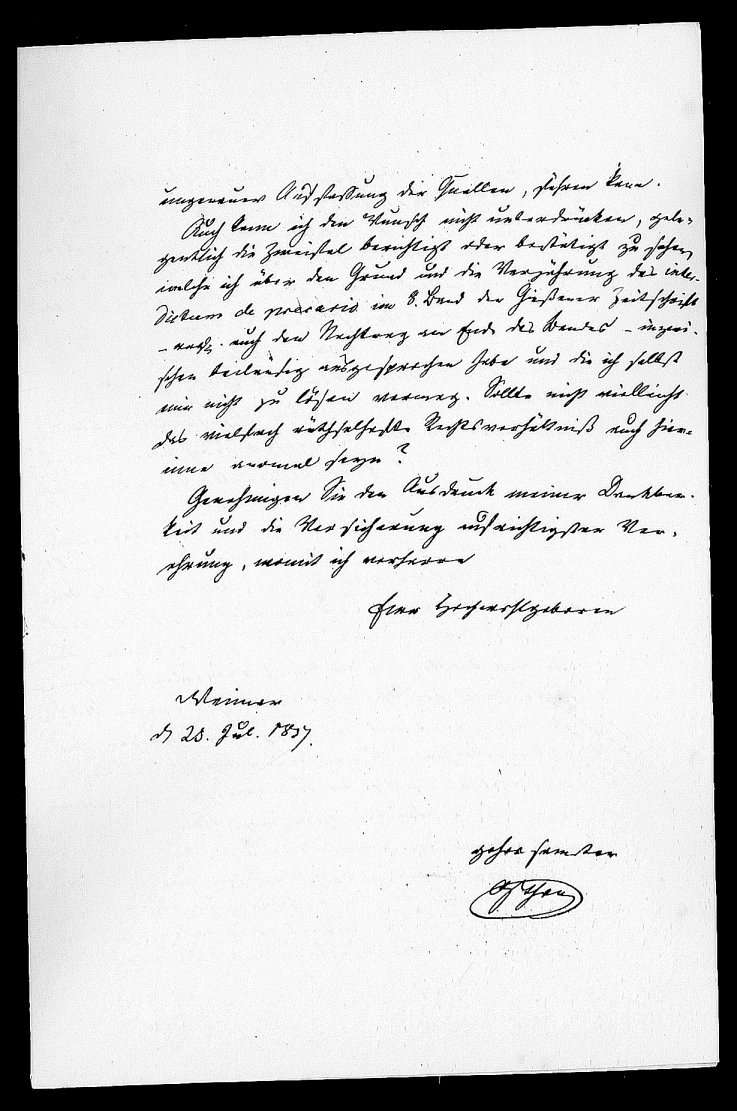 ungenauer Auffassung der Quellen, führen kann.
Auch kann ich den Wunsch nicht unterdrücken, gele-
gentlich die Zweifel berichtigt oder bestätigt zu sehen,
welche ich über den Grund und die Verjährung des inter-
dictum de precario im 8. Band der Gießener Zeitschrift
– vergl. auch den Nachtrag am Ende des Bandes – inzwi-
schen beiläufig ausgesprochen habe und die ich selbst
mir nicht zu lösen vermag. Sollte nicht vielleicht
das vielfach räthselhafte Rechtsverhältniß auch hier-
inne anomal seyn?
Genehmigen Sie den Ausdruck meiner Dankbar-
keit und die Versicherung aufrichtigster Ver-
ehrung, womit ich verharre
Euer Hochwohlgeboren
Weimar
d 28. Jul. 1837.
gehorsamster